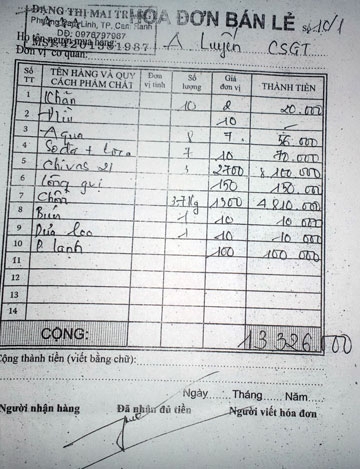 ĐẶNG THỊ MAI TR
HÓA ĐƠN BÁN LẺ Số 10/1
DĐ: 0976797987
Họ tên người mua hàng A Luyện CSGT
Đơn vị cơ quan:
SỐ TT TÊN HÀNG VÀ QUY CÁCH PHẨM CHẤT Đơn vị tính Số lượng Giá đơn vị THÀNH TIỀN
1 Khăn 10 2 20.000
2 10
3 Aqua 8 7 56 000
4 Sođa + 7 10 70.000
5 Chivas 21 3 2700 8 100 000
6 150 150.000
7 Chồn 3.7 kg 1300 4 810 000
8 Bún 1 10 10 000
9 Dưa leo 1 10 10 000
10 P. lạnh 100 100 000
11
12
13
14
CỘNG: 13 326 000
Cộng thành tiền (viết bằng chữ):
Ngày Tháng Năm
Người nhận hàng Đã nhận đủ tiền Người viết hóa đơn